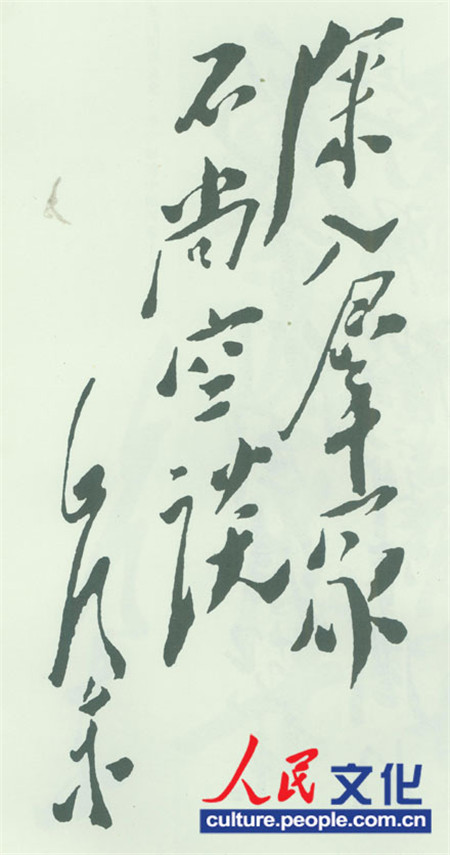 深入羣眾
不尚空談
毛澤東
人民文化
culture.people.com.cn